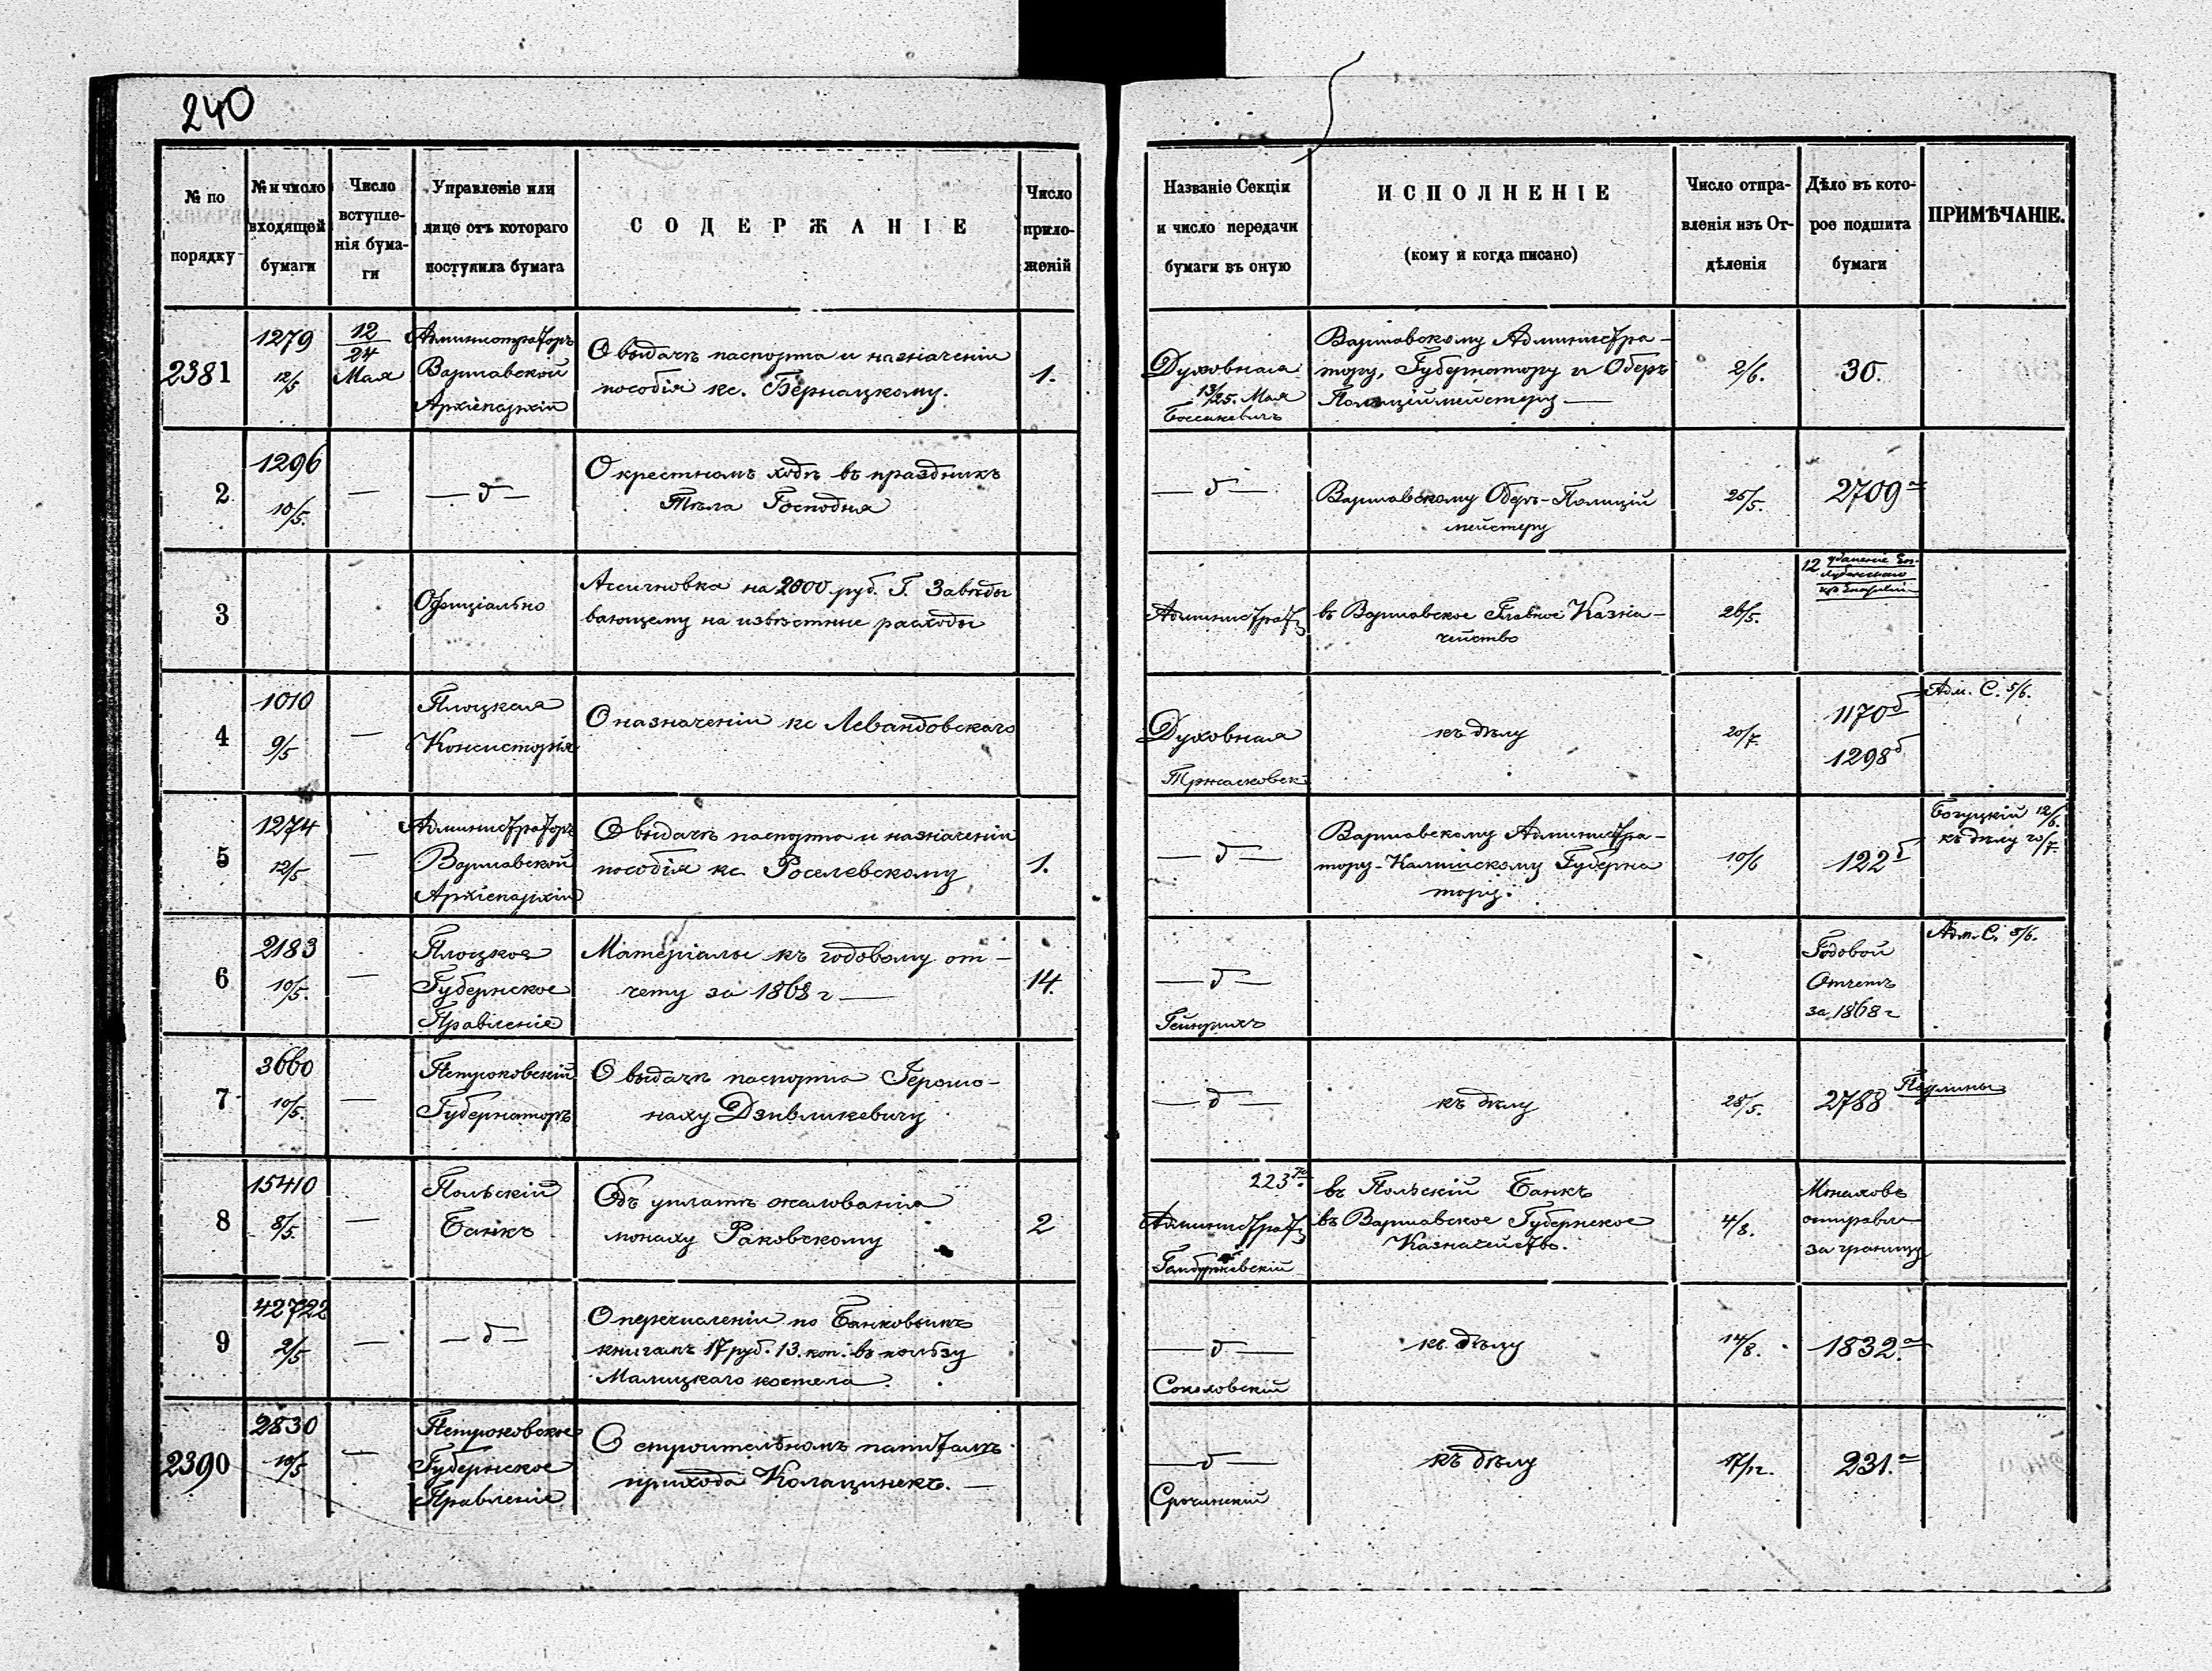 240
№ по порядку
№ и число входящей бумаги
Число вступленія бумаги
Управленіе или лице отъ котораго поступила бумага
СОДЕРЖАНІЕ
Число приложеній
Названіе Секціи и число передачи бумаги въ оную
ИСПОЛНЕНІЕ
(кому и когда писано)
Число отправленія изъ Отдѣленія
Дѣло въ которое подшита бумаги
ПРИМѢЧАНІЕ.
2381
1279
12/5
12/24
Мая
Администраторъ
Варшавской
Архіепархіи
О выдачѣ паспорта и назначеніи
пособія кс. Бернацкому.
1.
Духовная
13/25. Мая
Варшавскому Администра-
тору, Губернатору и Оберъ
Полиціймейстеру —
2/6.
30.
2
1296
10/5.
—
— д —
О крестномъ ходѣ въ праздникъ
Тѣла Господня
— д —
Варшавскому Оберъ-Полицій
мейстеру
25/5.
2709 а
3
Офиціально
Ассигновка на 2000 руб. Г. Завѣды
вающему на извѣстные расходы
Администрат
въ Варшавское Главное Казна-
чейство
26/5.
12
4
1010
9/5
—
Плоцкая
Консисторія
О назначеніи кс Левандовскаго
Духовная
къ дѣлу
20/7.
1170 б
1298 б
Адм. С. 5/6.
5
1274
12/5
—
Администраторъ
Варшавской
Архіепархіи
О выдачѣ паспорта и назначеніи
пособія кс. Роселевскому
1.
— д —
Варшавскому Администра-
тору-Калишскому Губерна
тору.
10/6
122 б
Богуцкій 12/6.
къ дѣлу 20/7.
6
2183
10/5.
—
Плоцкое
Губернское
Правленіе
Матеріалы къ годовому от-
чету за 1868 г —
14.
— д —
Гейнрихъ
Годовой
Отчетъ
за 1868 г
Адм. С. 5/6.
7
3660
10/5.
—
Петроковскій
Губернаторъ
О выдачѣ паспорта Геромо-
наху Дзивликевичу
— д —
къ дѣлу
28/5.
2788
Паулины
8
15410
8/5.
—
Польскій
Банкъ
Объ уплатѣ жалованія
монаху Раковскому
2
223
Администрат
въ Польскій Банкъ
въ Варшавское Губернское
Казначейство.
4/8.
Монаховъ
отправл
за границу
9
42722
2/5
—
— д —
О перечисленіи по Банковымъ
книгамъ 17 руб. 13. коп. въ пользу
Малицкаго костела.
— д —
Соколовскій
къ дѣлу
14/8.
1832. а
2390
2830
10/5
—
Петроковское
Губернское
Правленіе
О строительномъ
прихода Колацинекъ. —
— д —
Срочинскій
къ дѣлу
17/12.
231. а